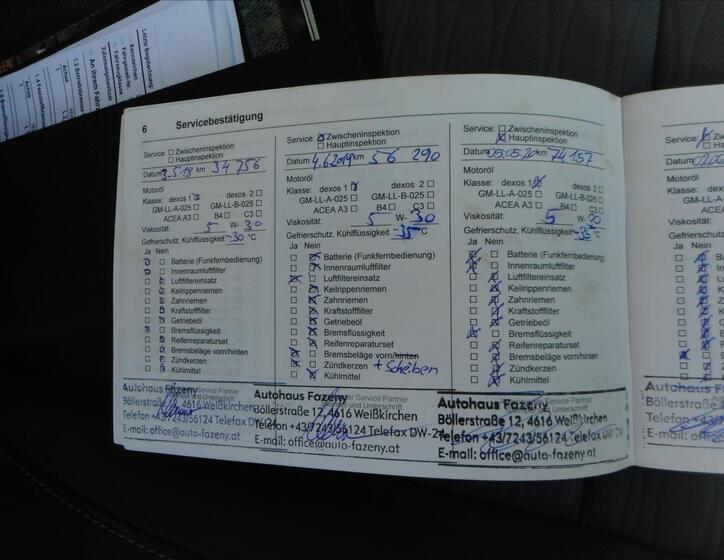 Letzte Begutachtung:
Kennzeichen
Fahrgestell-Nr.
Fahrzeugklasse
Zulassungsbesitzer
An ihrem Fahrz
1.2 Betriebsbremse
Achse
1
1.4 Feststellbremse
Achse
6 Servicebestätigung
Service: Zwischeninspektion
Hauptinspektion
Datum 3.5.18 km 34 756
Motoröl
Klasse: dexos 1 dexos 2
GM-LL-A-025 GM-LL-B-025
ACEA A3 B4 C3
Viskosität: 5 W- 30
Gefrierschutz, Kühlflüssigkeit -30 °C
Ja Nein
Batterie (Funkfernbedienung)
Innenraumluftfilter
Luftfiltereinsatz
Keilrippenriemen
Zahnriemen
Kraftstofffilter
Getriebeöl
Bremsflüssigkeit
Reifenreparaturset
Bremsbeläge vorn/hinten
Zündkerzen
Kühlmittel
Service Partner
Autohaus Fazeny
Böllerstraße 12, 4616 Weißkirchen
Telefon +43/7243/56124 Telefax DW-24
E-mail: office@auto-fazeny.at
Service: Zwischeninspektion
Hauptinspektion
Datum 4.6.2019 km 56 290
Motoröl
Klasse: dexos 1 dexos 2
GM-LL-A-025 GM-LL-B-025
ACEA A3 B4 C3
Viskosität: 5 W- 30
Gefrierschutz, Kühlflüssigkeit -35 °C
Ja Nein
Batterie (Funkfernbedienung)
Innenraumluftfilter
Luftfiltereinsatz
Keilrippenriemen
Zahnriemen
Kraftstofffilter
Getriebeöl
Bremsflüssigkeit
Reifenreparaturset
Bremsbeläge vorn/hinten
Zündkerzen + Scheiben
Kühlmittel
Service Partner
und Unterschrift
Autohaus Fazeny
Böllerstraße 12, 4616 Weißkirchen
Telefon +43/7243/56124 Telefax DW-24
E-mail: office@auto-fazeny.at
Service: Zwischeninspektion
Hauptinspektion
Datum km 74 157
Motoröl
Klasse: dexos 1 dexos 2
GM-LL-A-025 GM-LL-B-025
ACEA A3 B4 C3
Viskosität: 5 W- 30
Gefrierschutz, Kühlflüssigkeit -35 °C
Ja Nein
Batterie (Funkfernbedienung)
Innenraumluftfilter
Luftfiltereinsatz
Keilrippenriemen
Zahnriemen
Kraftstofffilter
Getriebeöl
Bremsflüssigkeit
Reifenreparaturset
Bremsbeläge vorn/hinten
Zündkerzen
Kühlmittel
Service Partner
Autohaus Fazeny
Böllerstraße 12, 4616 Weißkirchen
Telefon +43/7243/56124 Telefax DW-24
E-mail: office@auto-fazeny.at
Service:
Datum
Motoröl
Klasse: d
GM-LL-A
ACEA
Viskosität:
Gefrierschutz,
Ja Nein
Autohaus F
Böllerstraße
Telefon +43/7
E-mail: offic